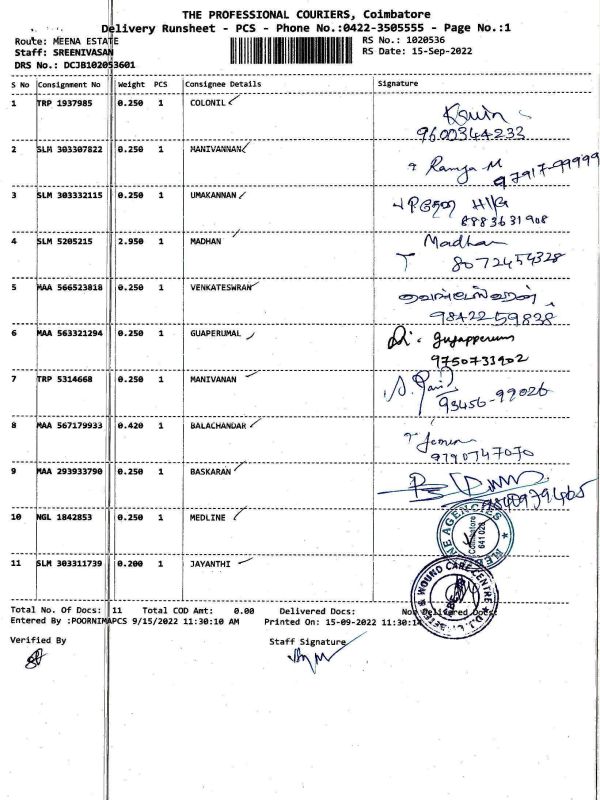 THE PROFESSIONAL COURIERS, Coimbatore
Delivery Runsheet - PCS - Phone No.:0422-3505555 - Page No.:1
Route: MEENA ESTATE
RS No.: 1020536
Staff: SREENIVASAN
RS Date: 15-Sep-2022
DRS No.: DCJB102053601
S No Consignment No Weight PCS Consignee Details Signature
1 TRP 1937985 0.250 1 COLONIL
9600344233
2 SLM 303307822 0.250 1 MANIVANNAN
Ramya M 97917-99999
3 SLM 303332115 0.250 1 UMAKANNAN
8883631908
4 SLM 5205215 2.950 1 MADHAN Madhan
8072454328
5 MAA 566523818 0.250 1 VENKATESWRAN
98422 59838
6 MAA 563321294 0.250 1 GUAPERUMAL
gugapperumal
9750733902
7 TRP 5314668 0.250 1 MANIVANAN
93456-99026
8 MAA 567179933 0.420 1 BALACHANDAR
9790747070
9 MAA 293933790 0.250 1 BASKARAN
10 NGL 1842853 0.250 1 MEDLINE
AGENCIES
Coimbatore
641 028
11 SLM 303311739 0.200 1 JAYANTHI
WOUND CARE CENTRE
Total No. Of Docs: 11 Total COD Amt: 0.00 Delivered Docs: Non Delivered Docs:
Entered By :POORNIMAPCS 9/15/2022 11:30:10 AM Printed On: 15-09-2022 11:30:14
Verified By Staff Signature